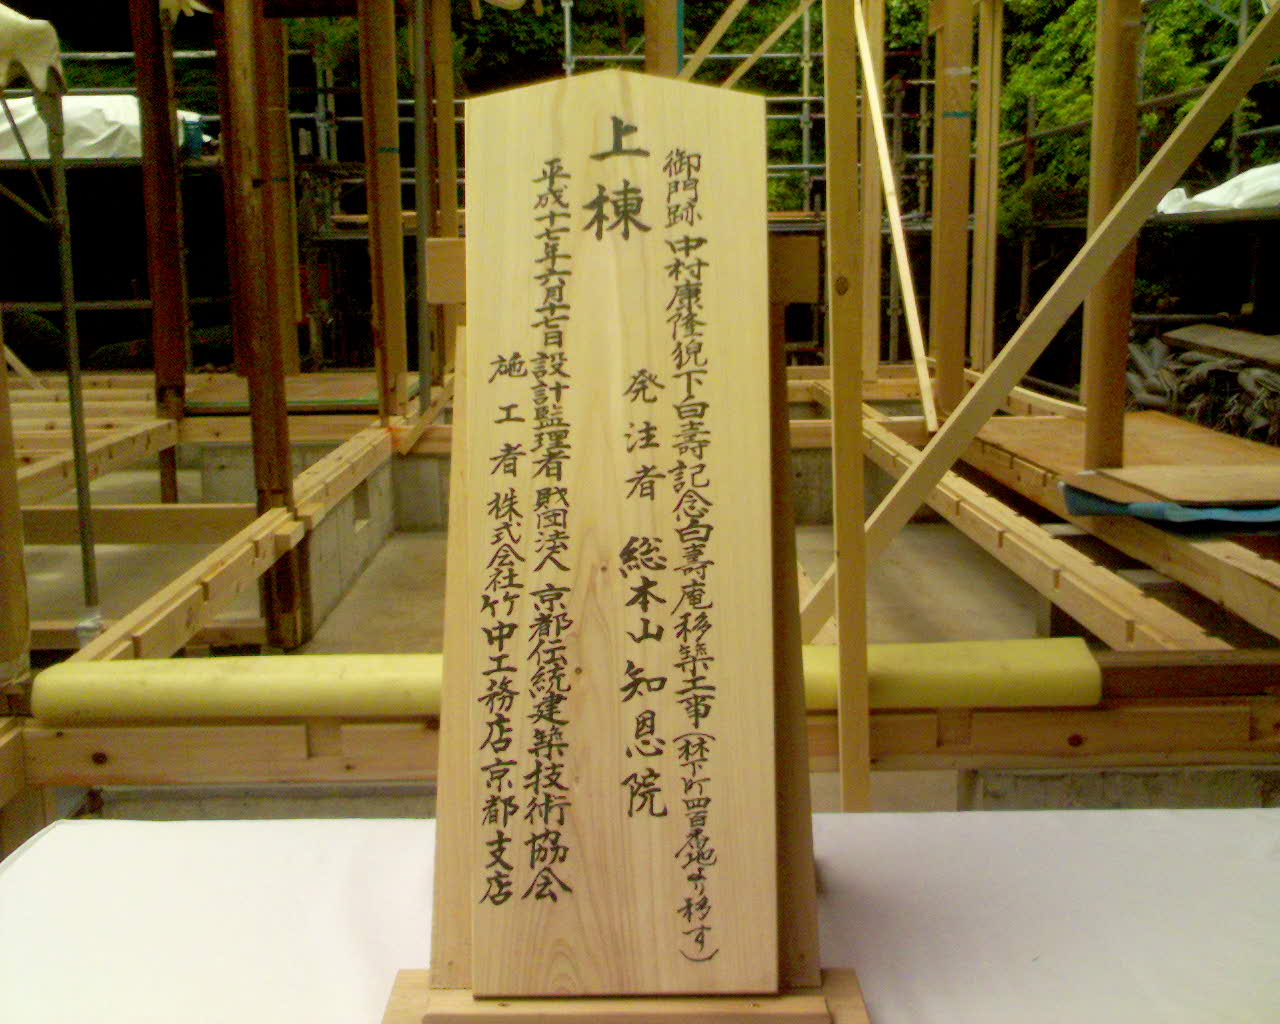 御門跡 中村康隆猊下白壽記念白壽庵移築工事(林下町四百番地より移す)
上棟
発注者 総本山知恩院
平成十七年六月十七日 設計監理者 財団法人 京都伝統建築技術協会
施工者 株式会社竹中工務店京都支店